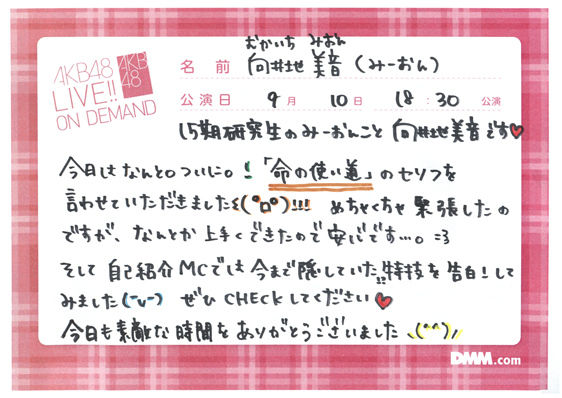 AKB48
LIVE!!
ON DEMAND
AKB
48
むかいち みおん
名前 向井地 美音 (みーおん)
公演日 9月 10日 18:30 公演
15期研究生のみーおんこと 向井地美音です♥
今日はなんと。ついに。!「命の使い道」のセリフを
言わせていただきました(°ロ°)!!! めちゃくちゃ緊張したの
ですが、なんとか上手くできたので安心です…。=3
そして自己紹介MCでは今まで隠していた!!特技を告白!して
みました(˘ᵕ˘) ぜひCHECKしてください♥
今日も素敵な時間をありがとうございました \(^^)/
DMM.com